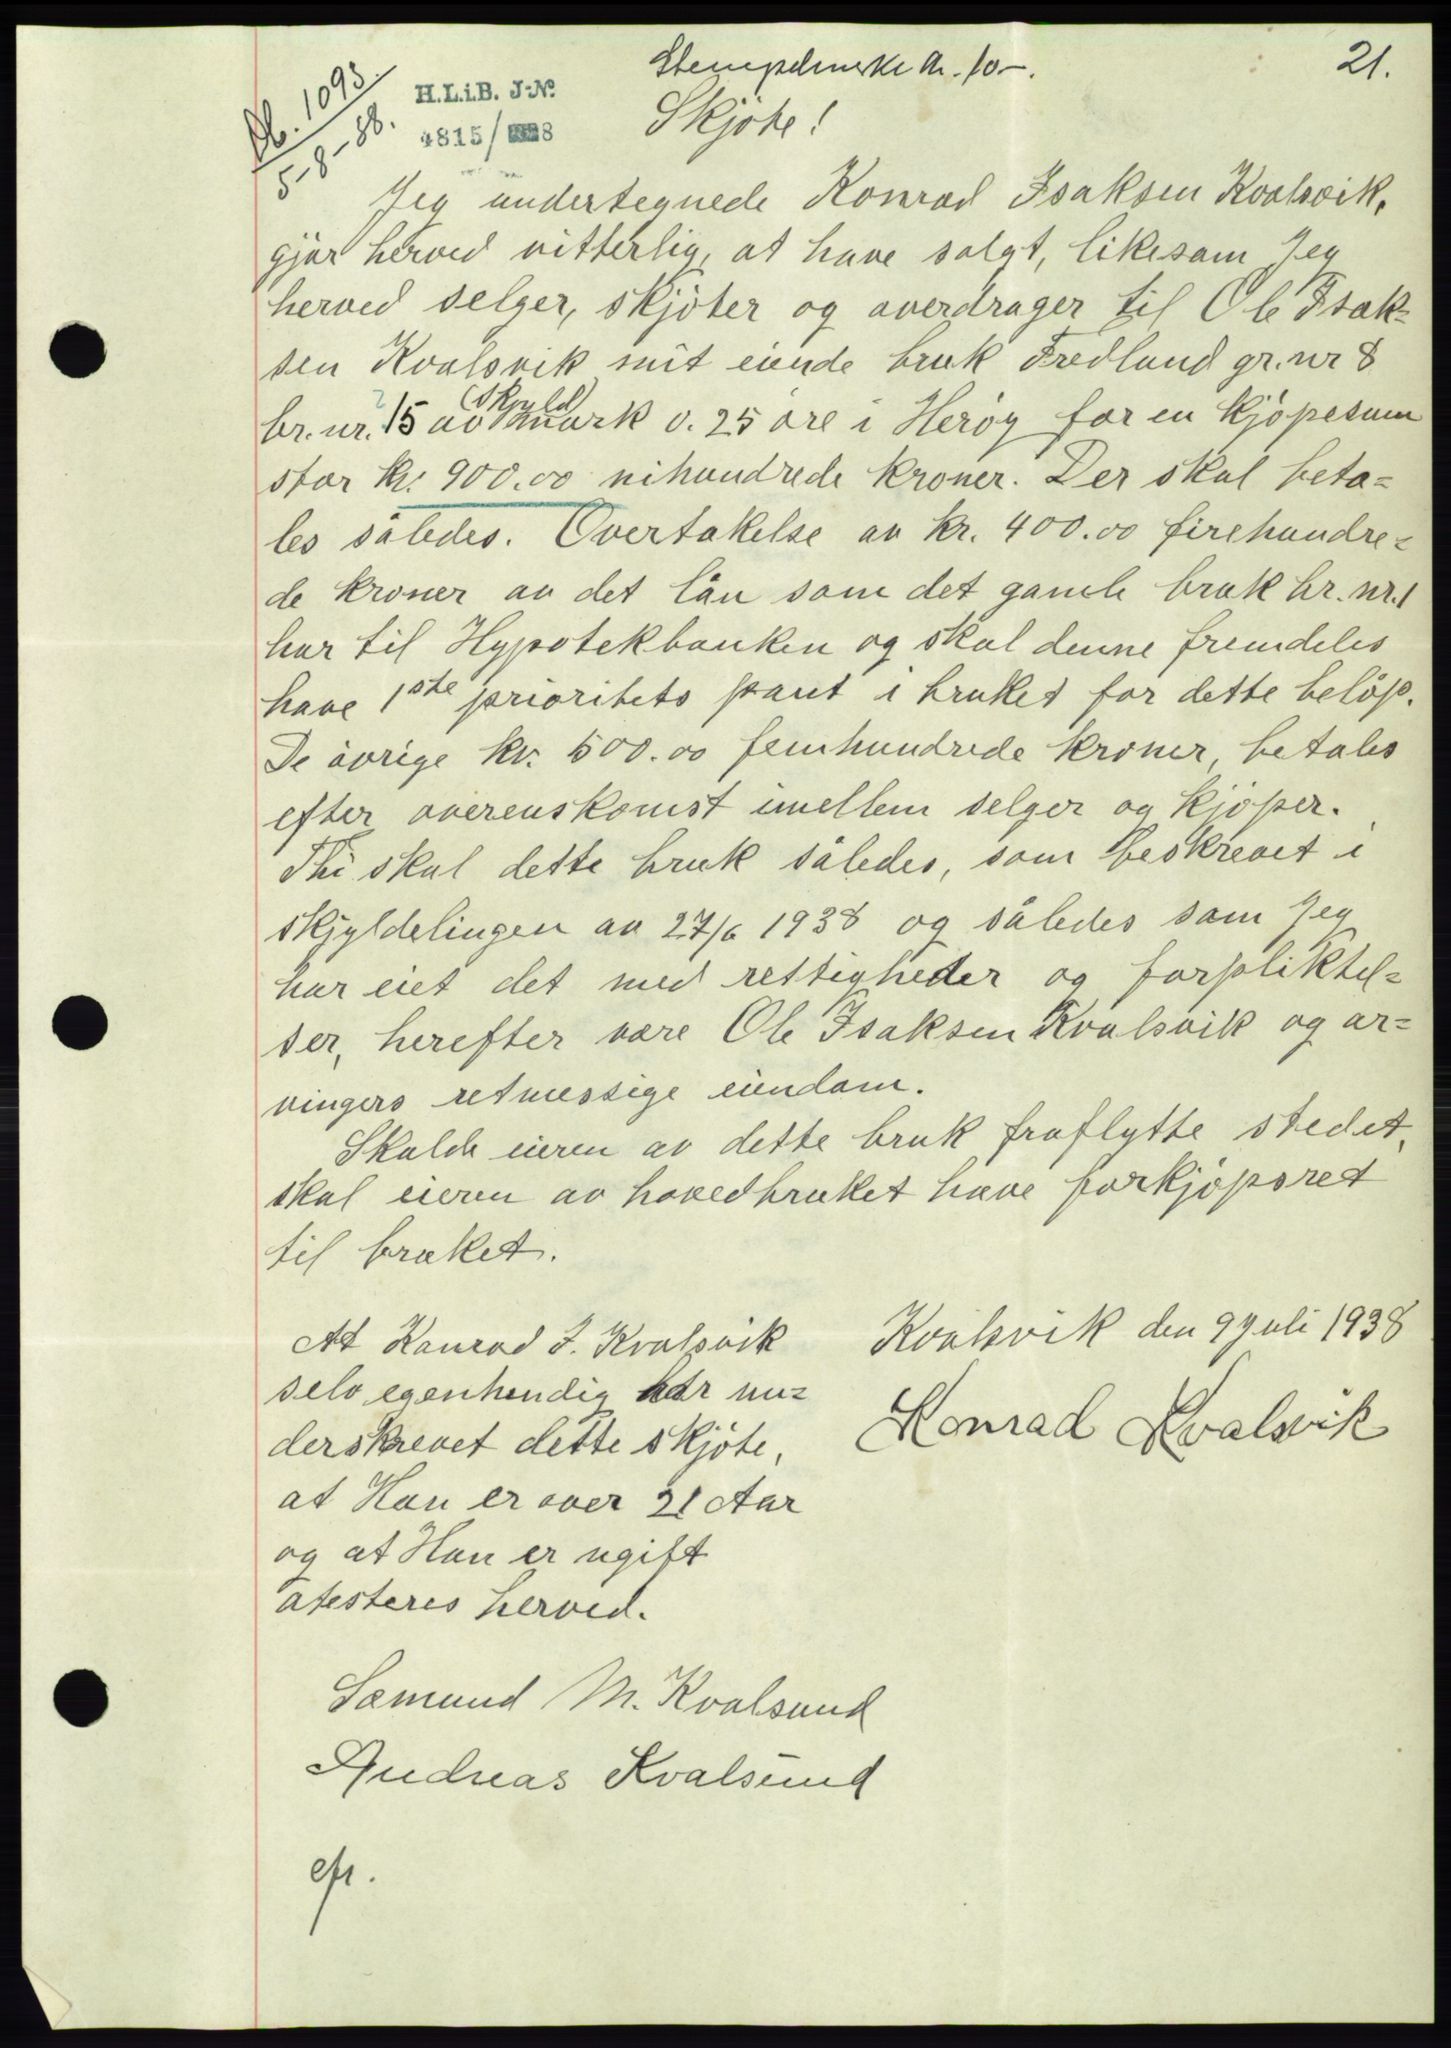 Stempelmerke kr. 10-.
21.
Db. 1093.
5-8-38.
H.L.i.B. J-No.
4815/ 8
Skjöte!
Jeg undertegnede Konrad Isaksen Kvalsvik,
gjör herved vitterlig, at have solgt, likesom Jeg
herved selger, skjöter og overdrager til Ole Isak=
sen Kvalsvik mit eiende bruk Fredlund gr. nr 8
(skyld)
br. nr. 15 av mark 0.25 öre i Heröy for en kjöpesum
stor kr. 900.00 nihundrede kroner. Der skal beta=
les således. Overtakelse av kr. 400.00 firehundre=
de kroner av det lån som det gamle bruk br. nr. 1
har til Hypotekbanken og skal denne fremdeles
have 1ste prioritets pant i bruket for dette belöp.
De övrige kr. 500.00 femhundrede kroner, betales
efter overenskomst imellem selger og kjöper.
Thi skal dette bruk således, som beskrevet i
skjyldelingen av 27/6 1938 og således som Jeg
har eiet det med rettigheder og forpliktel=
ser, herefter være Ole Isaksen Kvalsvik og ar=
vingers retmessige eiendom.
Skulde eieren av dette bruk fraflytte stedet,
skal eieren av hovedbruket have forkjöpsret
til bruket.
Kvalsvik den 9 Juli 1938
Konrad Kvalsvik
At Konrad I. Kvalsvik
selv egenhendig har un=
derskrevet dette skjöte,
at Han er over 21 Aar
og at Han er ugift
atesteres herved.
Sæmund M. Kvalsund
Andreas Kvalsund